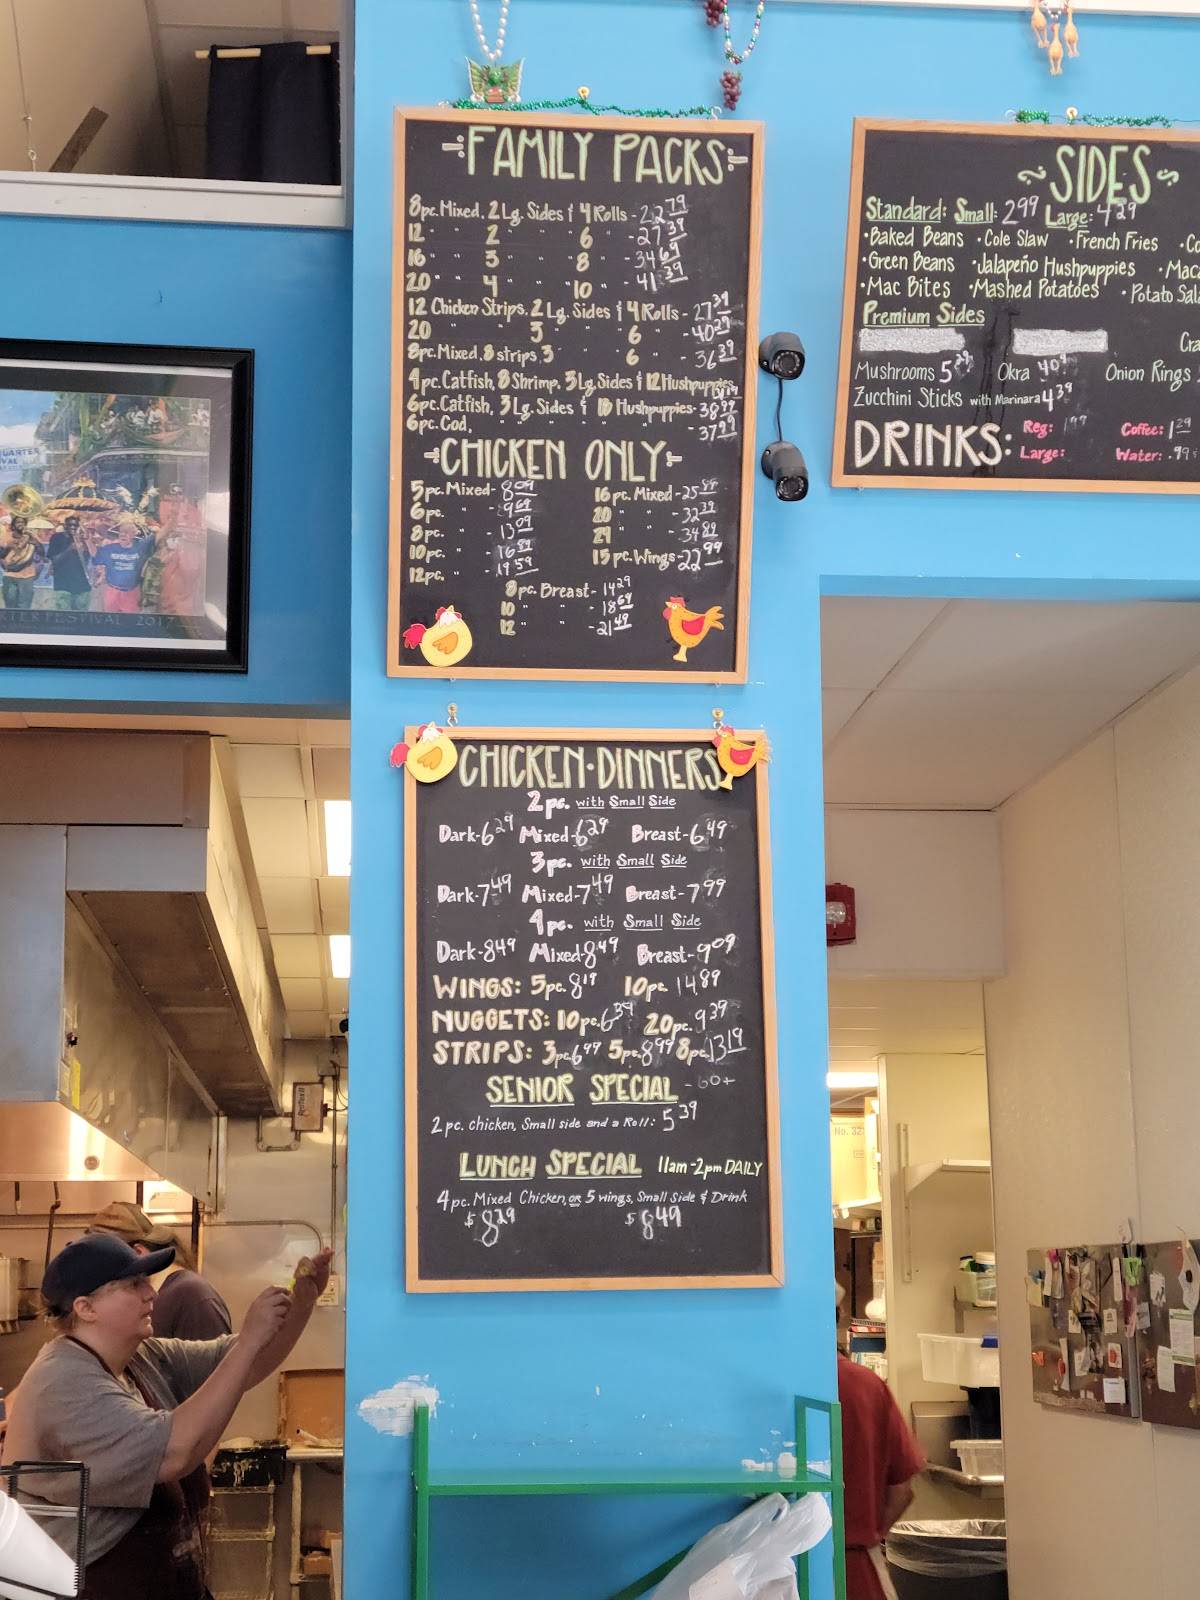 FAMILY PACKS
8pc. Mixed, 2 Lg. Sides & 4 Rolls - 22.79
12 " " 2 " " 6 " - 27.39
16 " " 3 " " 8 " - 34.69
20 " " 4 " " 10 " - 41.39
12 Chicken Strips, 2 Lg. Sides & 4 Rolls - 27.39
20 " " 3 " " 6 " - 40.29
8pc. Mixed, 8 strips, 3 " " 6 " - 36.39
4pc. Catfish, 8 Shrimp, 3 Lg. Sides & 12 Hushpuppies
6pc. Catfish, 3 Lg. Sides & 18 Hushpuppies - 38.99
6pc. Cod, " " " " - 37.99
CHICKEN ONLY
5pc. Mixed - 8.09
6pc. " - 9.69
8pc. " - 13.09
10pc. " - 16.89
12pc. " - 19.59
16pc. Mixed - 25.89
20 " " - 32.39
24 " " - 34.89
15pc. Wings - 22.99
8pc. Breast - 14.29
10 " " - 18.69
12 " " - 21.49
SIDES
Standard: Small: 2.99 Large: 4.29
• Baked Beans • Cole Slaw • French Fries • Co
• Green Beans • Jalapeño Hushpuppies • Mac
• Mac Bites • Mashed Potatoes • Potato Sal
Premium Sides
Cra
Mushrooms 5.29 Okra 4.09 Onion Rings
Zucchini Sticks with Marinara 4.39
DRINKS: Reg: 1.99 Coffee: 1.29
Large: Water: .99¢
CHICKEN • DINNERS
2pc. with Small Side
Dark - 6.29 Mixed - 6.29 Breast - 6.49
3pc. with Small Side
Dark - 7.49 Mixed - 7.49 Breast - 7.99
4pc. with Small Side
Dark - 8.49 Mixed - 8.49 Breast - 9.09
WINGS: 5pc. 8.19 10pc. 14.89
NUGGETS: 10pc. 6.39 20pc. 9.39
STRIPS: 3pc. 6.99 5pc. 8.99 8pc. 13.19
SENIOR SPECIAL - 60+
2 pc. chicken, Small side and a Roll: 5.39
LUNCH SPECIAL 11am - 2pm DAILY
4pc. Mixed Chicken, or 5 wings, Small Side & Drink
$8.29 $8.49
2017
No. 32